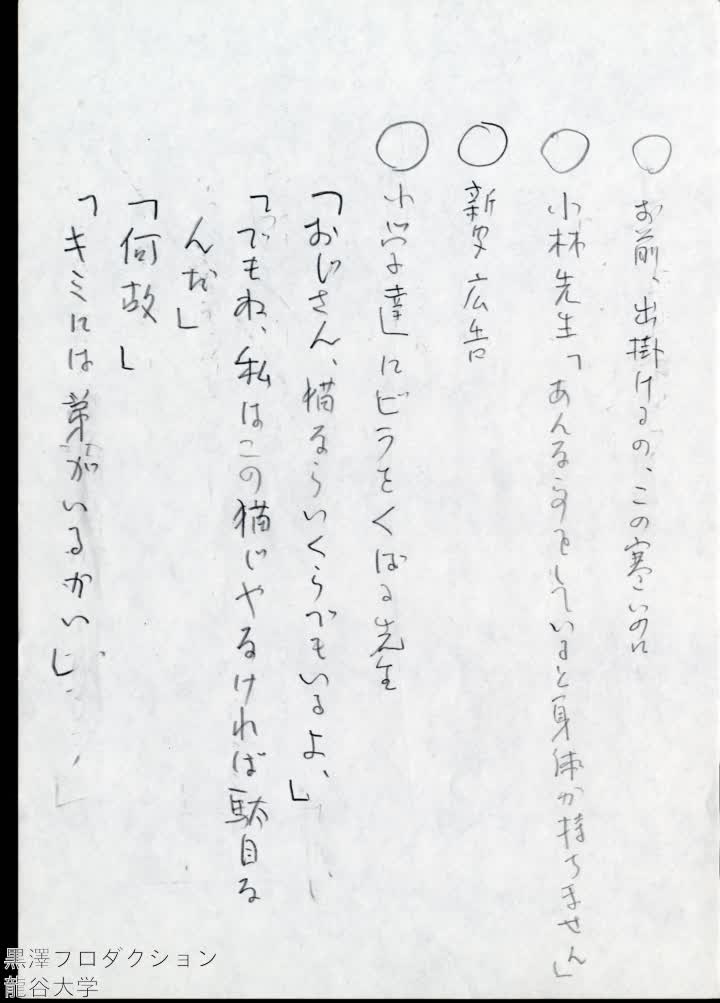 ○ お前、出掛けるの、この寒いのに
○ 小林先生「あんな事をしていると身体が持ちません」
○ 新聞広告
○ 小学生達にビラをくばる先生
「おじさん、猫ならいくらでもいるよ、」
「でもね、私はこの猫じゃなければ駄目な
んだ」
「何故」
「キミには弟がいるかい」
黒澤プロダクション
龍谷大学